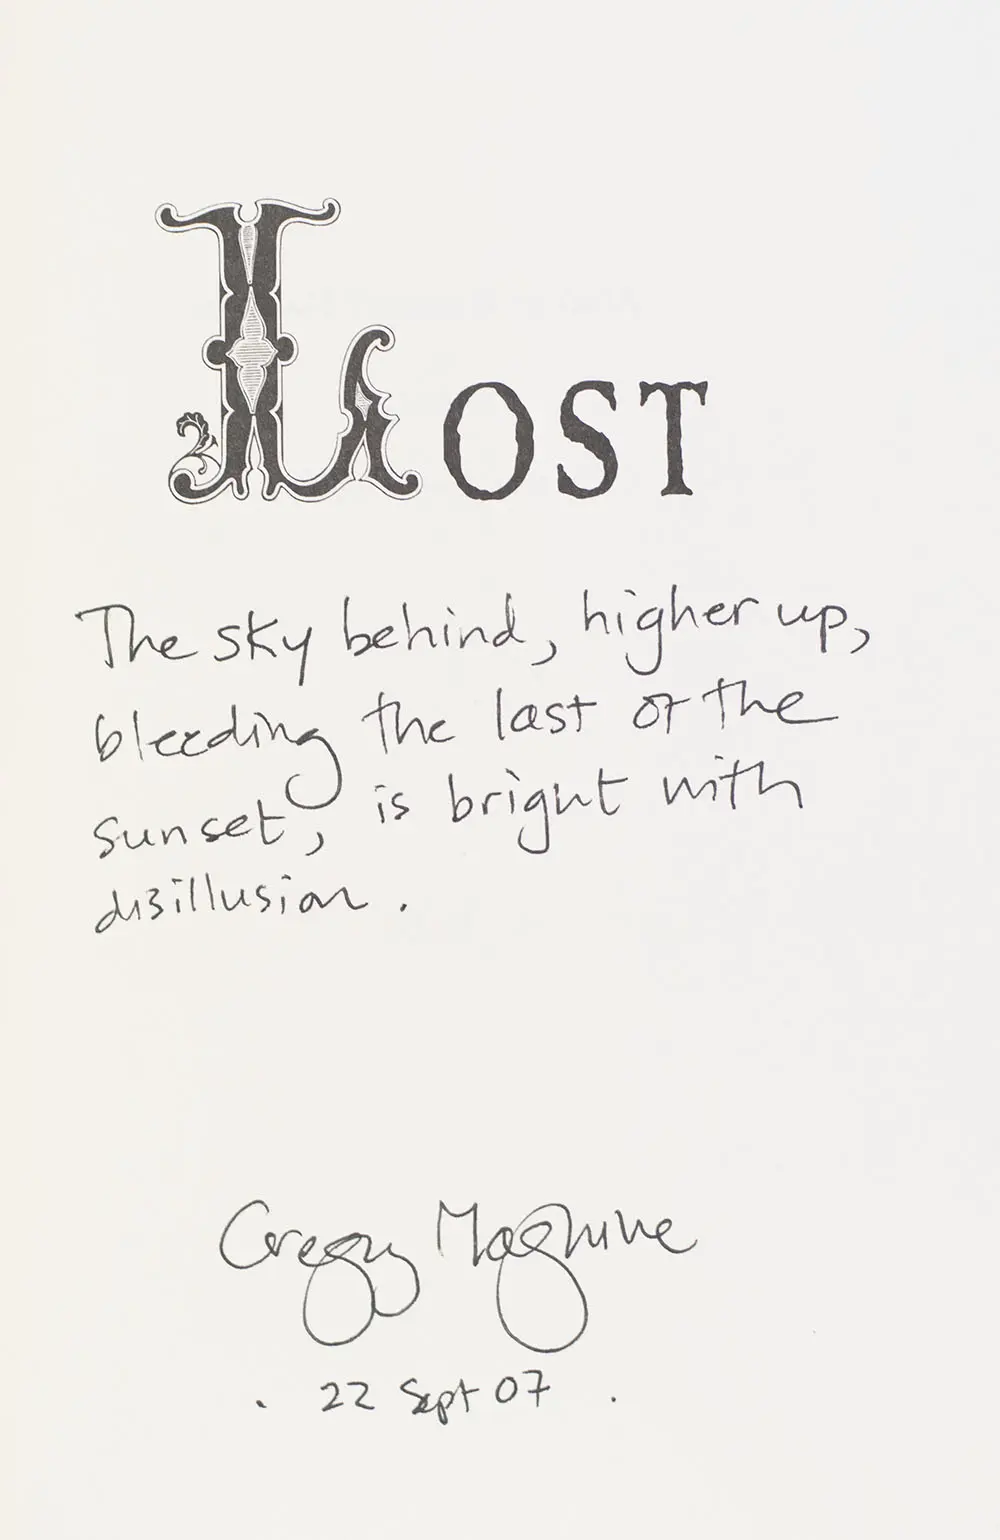 LOST
The sky behind, higher up,
bleeding the last of the
sunset, is bright with
disillusion.
Greggy Maguire
. 22 Sept 07 .